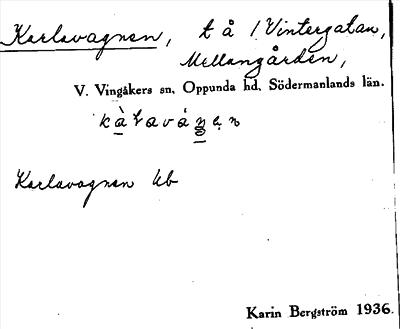 Karlavagnen, t å /Vintergatan,
Mellangården,
V. Vingåkers sn, Oppunda hd, Södermanlands län.
Karlavagnen ub
Karin Bergström 1936.